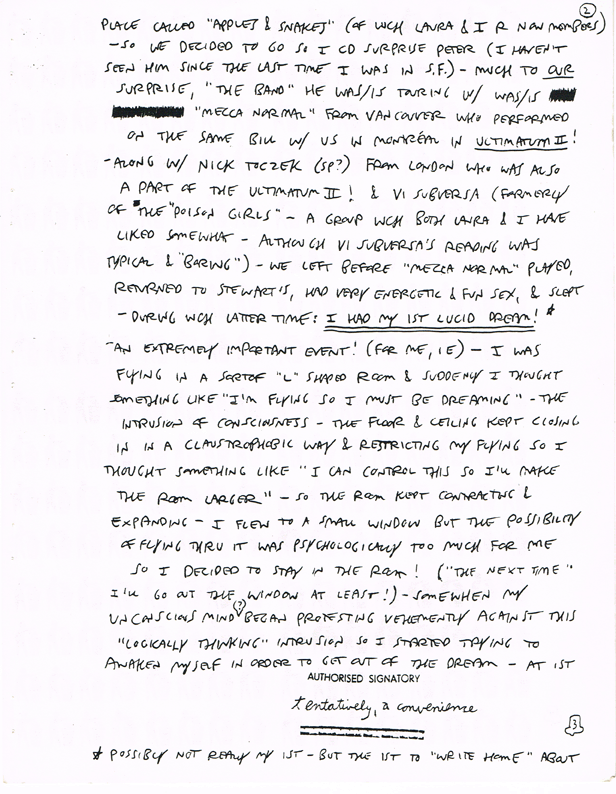 2
PLACE CALLED "APPLES & SNAKES" (OF WCH LAURA & I R NOW MEMBERS)
- SO WE DECIDED TO GO SO I CD SURPRISE PETER (I HAVEN'T
SEEN HIM SINCE THE LAST TIME I WAS IN S.F.) - MUCH TO OUR
SURPRISE, "THE BAND" HE WAS/IS TOURING W/ WAS/IS
"MECCA NORMAL" FROM VANCOUVER WHO PERFORMED
ON THE SAME BILL W/ US IN MONTRÉAL IN ULTIMATUM II!
- ALONG W/ NICK TOCZEK (SP?) FROM LONDON WHO WAS ALSO
A PART OF THE ULTIMATUM II! & VI SUBVERSA (FORMERLY
OF THE "POISON GIRLS" - A GROUP WCH BOTH LAURA & I HAVE
LIKED SOMEWHAT - ALTHOUGH VI SUBVERSA'S READING WAS
TYPICAL & "BORING") - WE LEFT BEFORE "MECCA NORMAL" PLAYED,
RETURNED TO STEWART'S, HAD VERY ENERGETIC & FUN SEX, & SLEPT
- DURING WCH LATTER TIME: I HAD MY 1ST LUCID DREAM! *
- AN EXTREMELY IMPORTANT EVENT! (FOR ME, IE) - I WAS
FLYING IN A SORTOF "L" SHAPED ROOM & SUDDENLY I THOUGHT
SOMETHING LIKE "I'M FLYING SO I MUST BE DREAMING" - THE
INTRUSION OF CONSCIOUSNESS - THE FLOOR & CEILING KEPT CLOSING
IN IN A CLAUSTROPHOBIC WAY & RESTRICTING MY FLYING SO I
THOUGHT SOMETHING LIKE "I CAN CONTROL THIS SO I'LL MAKE
THE ROOM LARGER" - SO THE ROOM KEPT CONTRACTING &
EXPANDING - I FLEW TO A SMALL WINDOW BUT THE POSSIBILITY
OF FLYING THRU IT WAS PSYCHOLOGICALLY TOO MUCH FOR ME
SO I DECIDED TO STAY IN THE ROOM! ("THE NEXT TIME"
I'LL GO OUT THE WINDOW AT LEAST!) - SOMEWHEN MY
UNCONSCIOUS MIND (?) BEGAN PROTESTING VEHEMENTLY AGAINST THIS
"LOGICALLY THINKING" INTRUSION SO I STARTED TRYING TO
AWAKEN MYSELF IN ORDER TO GET OUT OF THE DREAM - AT 1ST
AUTHORISED SIGNATORY
tentatively, a convenience
3
* POSSIBLY NOT REALLY MY 1ST - BUT THE 1ST TO "WRITE HOME" ABOUT